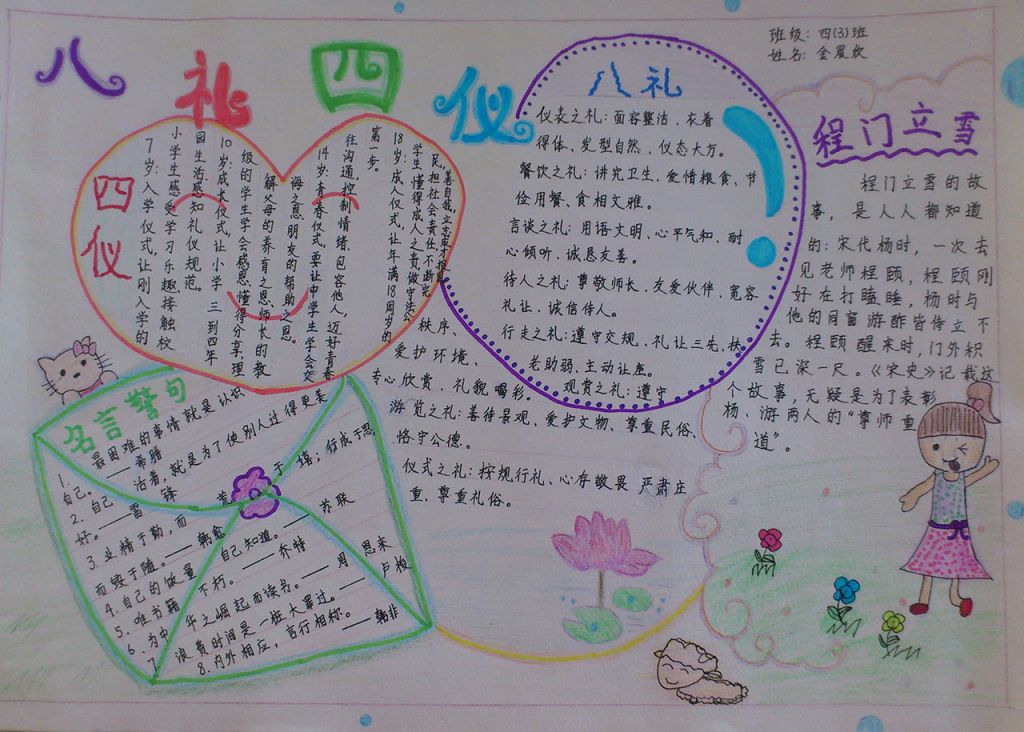 八礼四仪
班级：四(3)班
姓名：金晨欣
四仪
7岁：入学仪式，让刚入学的
小学生感受学习乐趣接触校
园生活感知礼仪规范。
10岁：成长仪式，让小学三到四年
级的学生学会感恩、懂得分享，理
解父母的养育之恩、师长的教
诲之恩、朋友的帮助之恩。
14岁：青春仪式，要让中学生学会交
往沟通，控制情绪、包容他人，迈好青春
第一步。
18岁：成人仪式，让年满18周岁的
学生懂得成人之责，做守法公
民，担社会责任，不断完
善自我，立志成才报国
八礼
仪表之礼：面容整洁、衣着
得体、发型自然、仪态大方。
餐饮之礼：讲究卫生、爱惜粮食、节
俭用餐、食相文雅。
言谈之礼：用语文明、心平气和、耐
心倾听、诚恳友善。
待人之礼：尊敬师长、友爱伙伴、宽容
礼让、诚信待人。
行走之礼：遵守交规、礼让三先、扶
老助弱、主动让座。
观赏之礼：遵守
秩序、
爱护环境、
专心欣赏、礼貌喝彩。
游览之礼：善待景观、爱护文物、尊重民俗、
恪守公德。
仪式之礼：按规行礼、心存敬畏 严肃庄
重、尊重礼俗。
程门立雪
程门立雪的故
事，是人人都知道
的：宋代杨时，一次去
见老师程颐，程颐刚
好在打瞌睡，杨时与
他的同窗游酢皆侍立不
去。程颐醒来时，门外积
雪已深一尺。《宋史》记载这
个故事，无疑是为了表彰
杨、游两人的“尊师重
道”。
名言警句
1. 最困难的事情就是认识
自己。——希腊
2. 自己活着，就是为了使别人过得更美
好。——雷锋
3. 业精于勤，而荒于嬉；行成于思，
而毁于随。——韩愈
4. 自己的饭量自己知道。——苏联
5. 唯书籍不朽。——乔特
6. 为中华之崛起而读书。——周恩来
7. 浪费时间是一桩大罪过。——卢梭
8. 内外相应，言行相称。——韩非